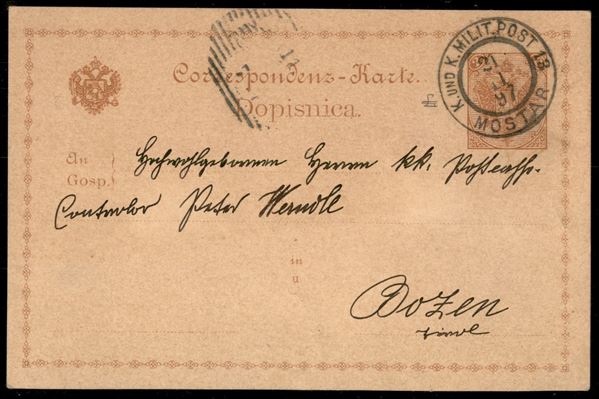 K. UND K. MILIT. POST 13
21
1
97
MOSTAR
Correspondenz-Karte.
Dopisnica.
An
Gosp.
Hochwohlgeboren Herrn kk. Postcasse-
Controlor Peter Werndl
in
u
Bozen
Tirol